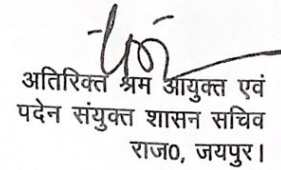 अतिरिक्त श्रम आयुक्त एवं
पदेन संयुक्त शासन सचिव
राज0, जयपुर।